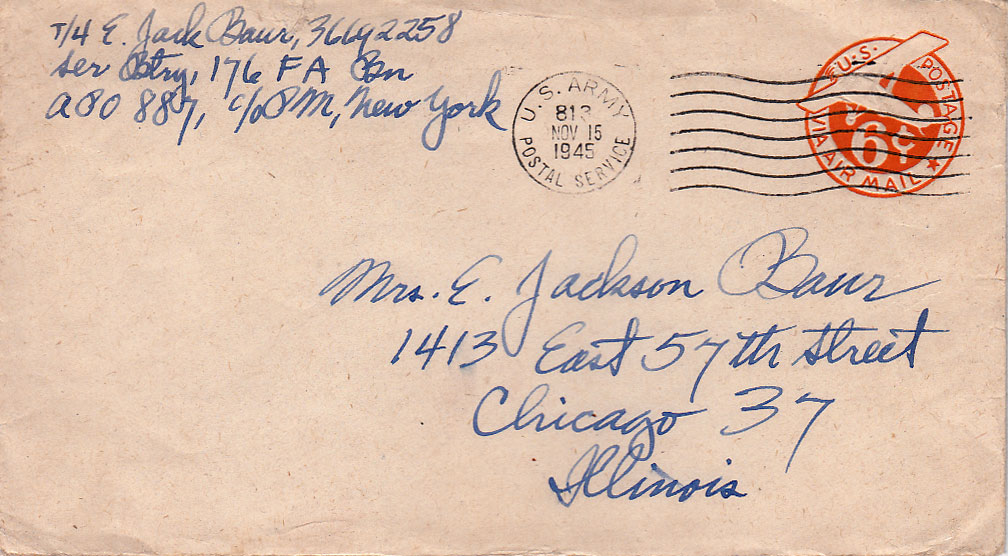 T/4 E. Jack Baur, 36692258
Ser Btry, 176 FA Bn
APO 887, c/o PM, New York
U.S. ARMY
813
NOV 15
1945
POSTAL SERVICE
U.S. POSTAGE
6¢
VIA AIR MAIL
Mrs. E. Jackson Baur
1413 East 57th Street
Chicago 37
Illinois